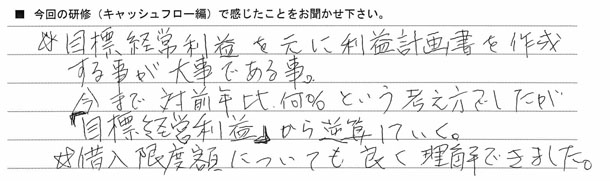 ■ 今回の研修（キャッシュフロー編）で感じたことをお聞かせ下さい。
☆目標経常利益を元に利益計画書を作成
する事が大事である事。
今まで対前年比何％という考え方でしたが
『目標経営利益』から逆算していく。
☆借入限度額についても良く理解できました。